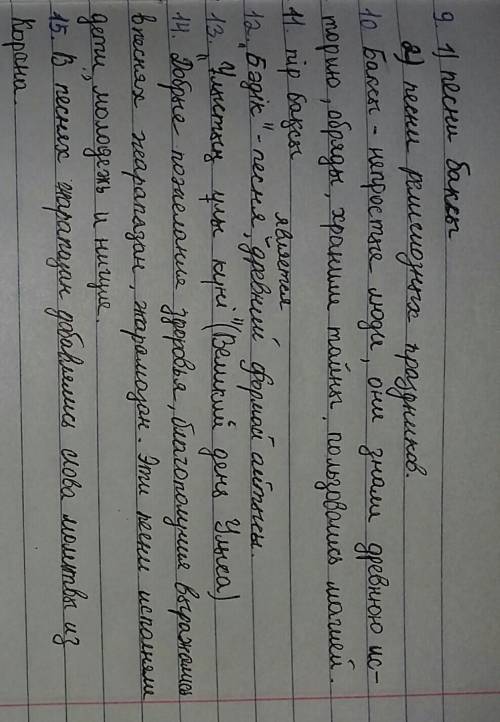 9. 1) песни баксы
2) песни религиозных праздников.
10 Баксы - непростые люди, они знали древнюю ис-
торию, обряды, хранили тайны, пользовались магией.
11. пір бақсы
12. "Бәдік" - песня, является древней формой айтысы.
13. "Ұлыстың ұлы күні" (Великий день Улыса)
14. Добрые пожелания здоровья, благополучия выражались
в песнях жарапазан, жарамазан. Эти песни исполняли
дети, молодежь и нищие.
15. В песнях жарапазан добавлялись слова молитвы из
Корана.